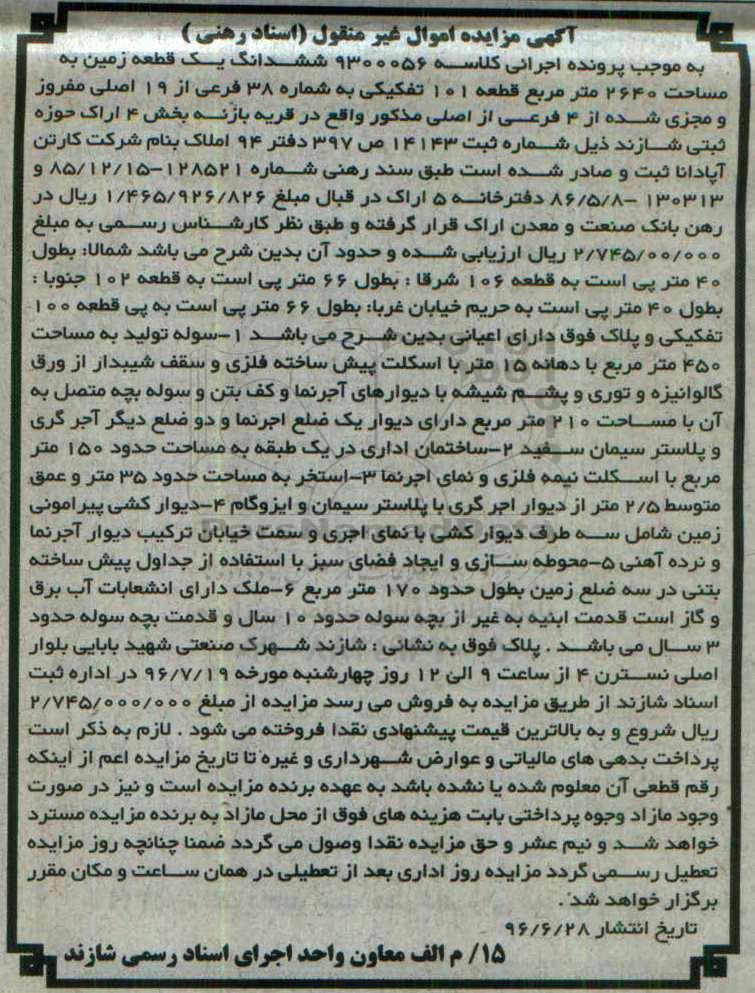 آگهی مزایده اموال غیر منقول (اسناد رهنی)
به موجب پرونده اجرائی کلاسه ۹۳۰۰۰۵۶ ششدانگ یک قطعه زمین به
مساحت ۲۶۴۰ متر مربع قطعه ۱۰۱ تفکیکی به شماره ۳۸ فرعی از ۱۹ اصلی مفروز
و مجزی شده از ۴ فرعی از اصلی مذکور واقع در قریه بازنه بخش ۴ اراک حوزه
ثبتی شازند ذیل شماره ثبت ۱۴۱۴۳ ص ۳۹۷ دفتر ۹۴ املاک بنام شرکت کارتن
آپادانا ثبت و صادر شده است طبق سند رهنی شماره ۱۲۸۵۲۱-۸۵/۱۲/۱۵ و
۱۳۰۳۱۳ -۸۶/۵/۸ دفترخانه ۵ اراک در قبال مبلغ ۱/۴۶۵/۹۲۶/۸۲۶ ریال در
رهن بانک صنعت و معدن اراک قرار گرفته و طبق نظر کارشناس رسمی به مبلغ
۲/۷۴۵/۰۰/۰۰۰ ریال ارزیابی شده و حدود آن بدین شرح می باشد شمالا: بطول
۴۰ متر پی است به قطعه ۱۰۶ شرقا : بطول ۶۶ متر پی است به قطعه ۱۰۲ جنوبا :
بطول ۴۰ متر پی است به حریم خیابان غربا: بطول ۶۶ متر پی است به پی قطعه ۱۰۰
تفکیکی و پلاک فوق دارای اعیانی بدین شرح می باشد ۱-سوله تولید به مساحت
۴۵۰ متر مربع با دهانه ۱۵ متر با اسکلت پیش ساخته فلزی و سقف شیبدار از ورق
گالوانیزه و توری و پشم شیشه با دیوارهای آجرنما و کف بتن و سوله بچه متصل به
آن با مساحت ۲۱۰ متر مربع دارای دیوار یک ضلع اجرنما و دو ضلع دیگر آجر گری
و پلاستر سیمان سفید ۲-ساختمان اداری در یک طبقه به مساحت حدود ۱۵۰ متر
مربع با اسکلت نیمه فلزی و نمای اجرنما ۳-استخر به مساحت حدود ۳۵ متر و عمق
متوسط ۲/۵ متر از دیوار اجر گری با پلاستر سیمان و ایزوگام ۴-دیوار کشی پیرامونی
زمین شامل سه طرف دیوار کشی با نمای اجری و سمت خیابان ترکیب دیوار آجرنما
و نرده آهنی ۵-محوطه سازی و ایجاد فضای سبز با استفاده از جداول پیش ساخته
بتنی در سه ضلع زمین بطول حدود ۱۷۰ متر مربع ۶-ملک دارای انشعابات آب برق
و گاز است قدمت ابنیه به غیر از بچه سوله حدود ۱۰ سال و قدمت بچه سوله حدود
۳ سال می باشد . پلاک فوق به نشانی : شازند شهرک صنعتی شهید بابایی بلوار
اصلی نسترن ۴ از ساعت ۹ الی ۱۲ روز چهارشنبه مورخه ۹۶/۷/۱۹ در اداره ثبت
اسناد شازند از طریق مزایده به فروش می رسد مزایده از مبلغ ۲/۷۴۵/۰۰۰/۰۰۰
ریال شروع و به بالاترین قیمت پیشنهادی نقدا فروخته می شود . لازم به ذکر است
پرداخت بدهی های مالیاتی و عوارض شهرداری و غیره تا تاریخ مزایده اعم از اینکه
رقم قطعی آن معلوم شده یا نشده باشد به عهده برنده مزایده است و نیز در صورت
وجود مازاد وجوه پرداختی بابت هزینه های فوق از محل مازاد به برنده مزایده مسترد
خواهد شد و نیم عشر و حق مزایده نقدا وصول می گردد ضمنا چنانچه روز مزایده
تعطیل رسمی گردد مزایده روز اداری بعد از تعطیلی در همان ساعت و مکان مقرر
برگزار خواهد شد .
تاریخ انتشار ۹۶/۶/۲۸
۱۵/ م الف معاون واحد اجرای اسناد رسمی شازند